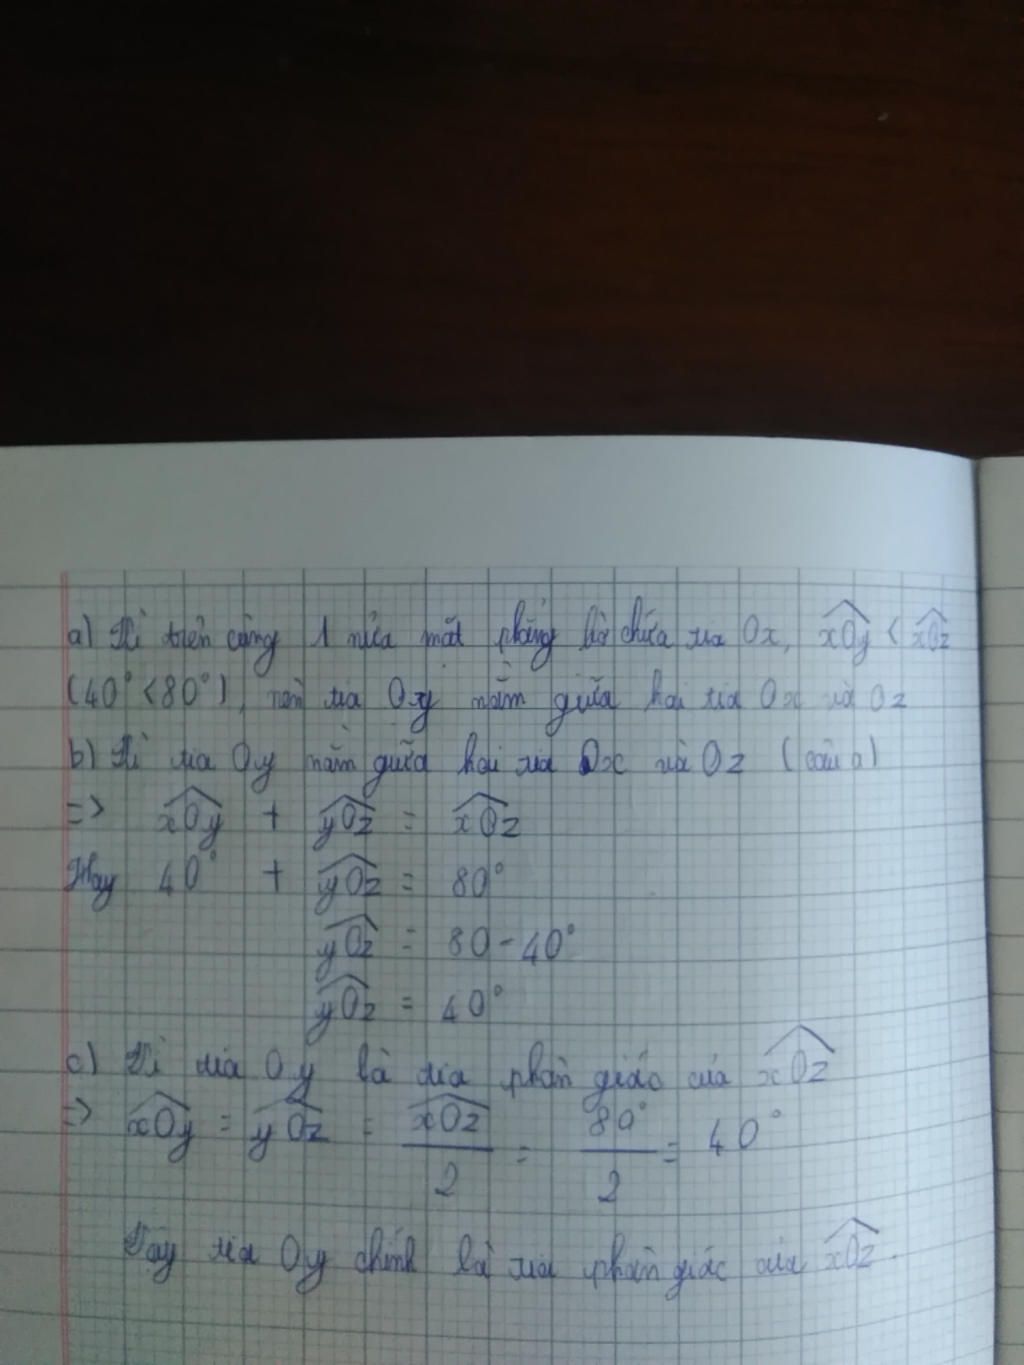 a) Vì trên cùng 1 nửa mặt phẳng bờ chứa tia Ox, xOy < xOz
(40° < 80°), nên tia Oy nằm giữa hai tia Ox và Oz
b) Vì tia Oy nằm giữa hai tia Ox và Oz (câu a)
=> xOy + yOz = xOz
Hay 40° + yOz = 80°
yOz = 80 - 40°
yOz = 40°
c) Vì tia Oy là tia phân giác của xOz
=> xOy = yOz = xOz/2 = 80°/2 = 40°
Vậy tia Oy chính là tia phân giác của xOz.